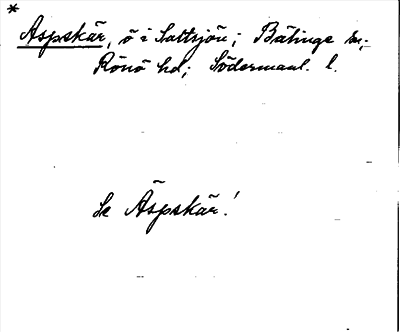 *
Aspskär, ö i Saltsjön; Bälinge sn;
Rönö hd; Södermanl. l.
Se Äspskär!